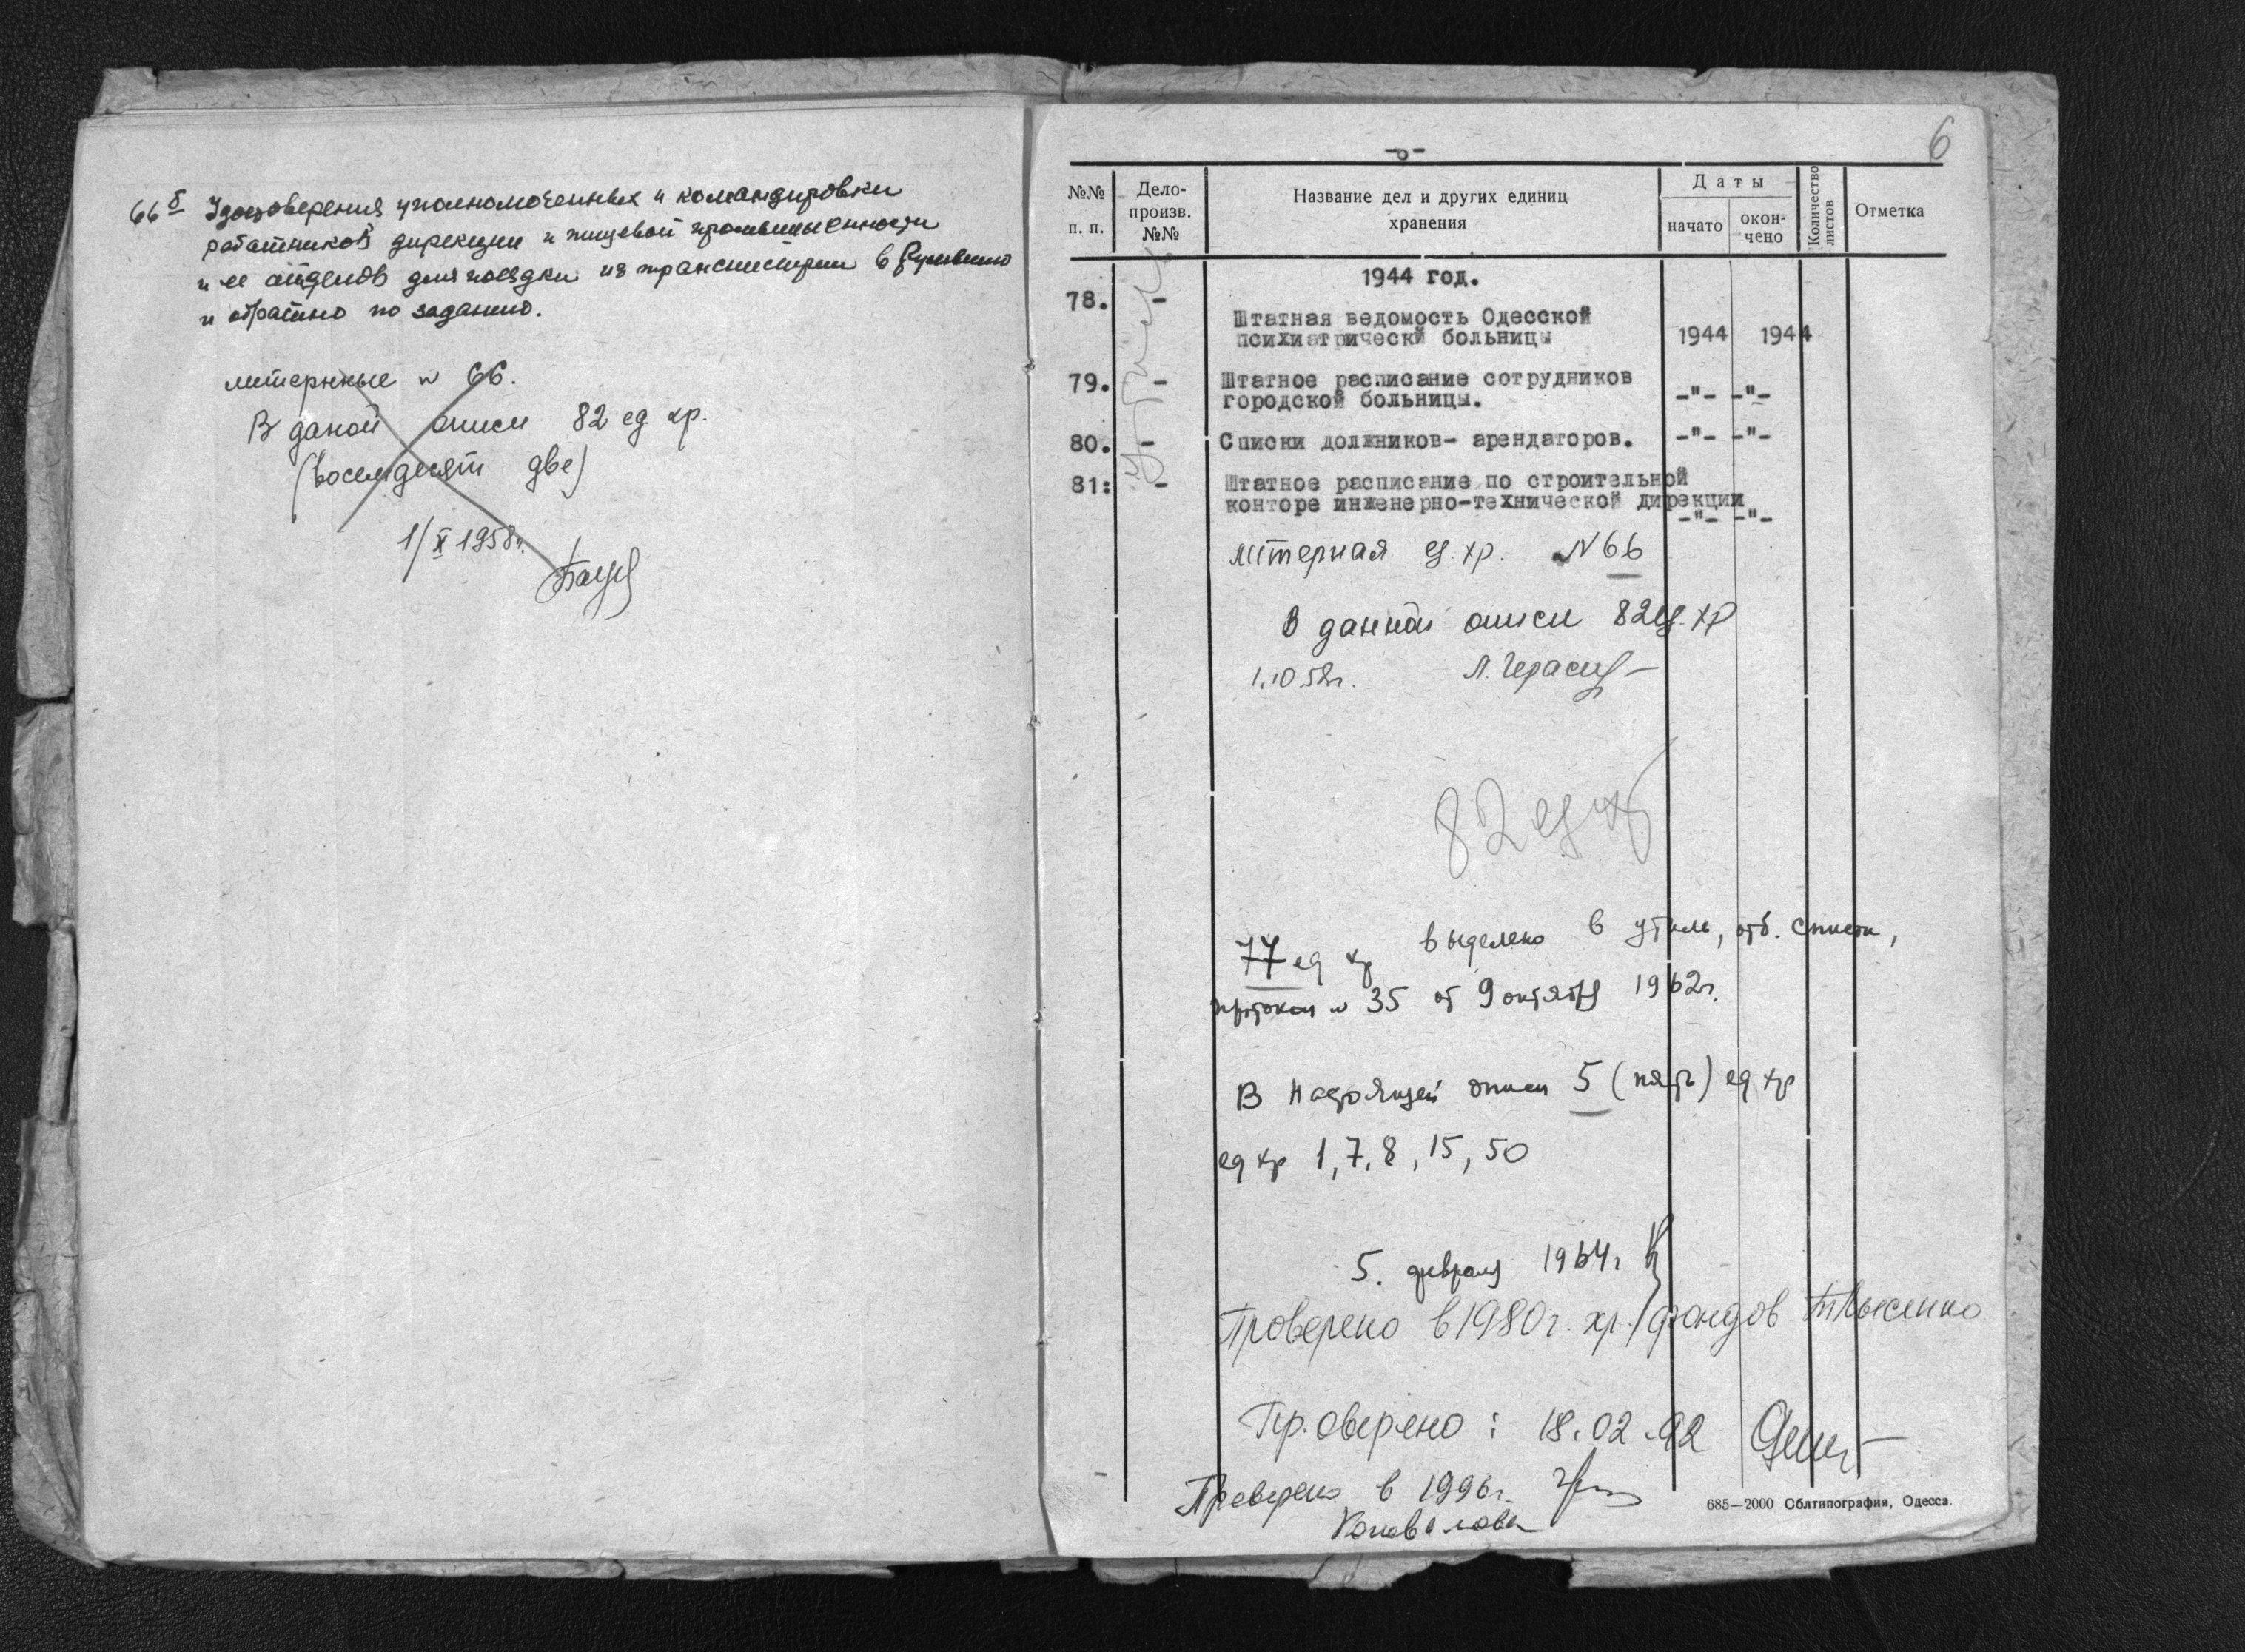 66б Удостоверения уполномоченных и командировки
работников дирекции и пищевой промышленности
и ее отделов для поездки из транснистрии в Румынию
и обратно по заданию.
литерные № 66.
В даной описи 82 ед. хр.
(восемдесят две)
1/X 1958г.
6
№№ п. п.
Дело-произв. №№
Название дел и других единиц хранения
Даты
начато
окон-чено
Количество листов
Отметка
утиль
1944 год.
78. - Штатная ведомость Одесской
психиатрически больницы 1944 1944
79. - Штатное расписание сотрудников
городской больницы. -"- -"-
80. - Списки должников- арендаторов. -"- -"-
81: - Штатное расписание по строительной
конторе инженерно-технической дирекции
-"- -"-
литерная ед. хр. №66
В данной описи 82 ед. хр
1.10 58г. Л.
82 ед хр
77 ед хр выделено в утиль, отб. списки,
протокол № 35 от 9 октября 1962г.
В настоящей описи 5 (пять) ед хр
ед хр 1, 7, 8, 15, 50
5. февраля 1964г
Проверено в 1980г. хр. фондов Т Лысенко
Проверено: 18.02.92
Проверено в 1996г.
Коновалова
685—2000 Облтипография, Одесса.